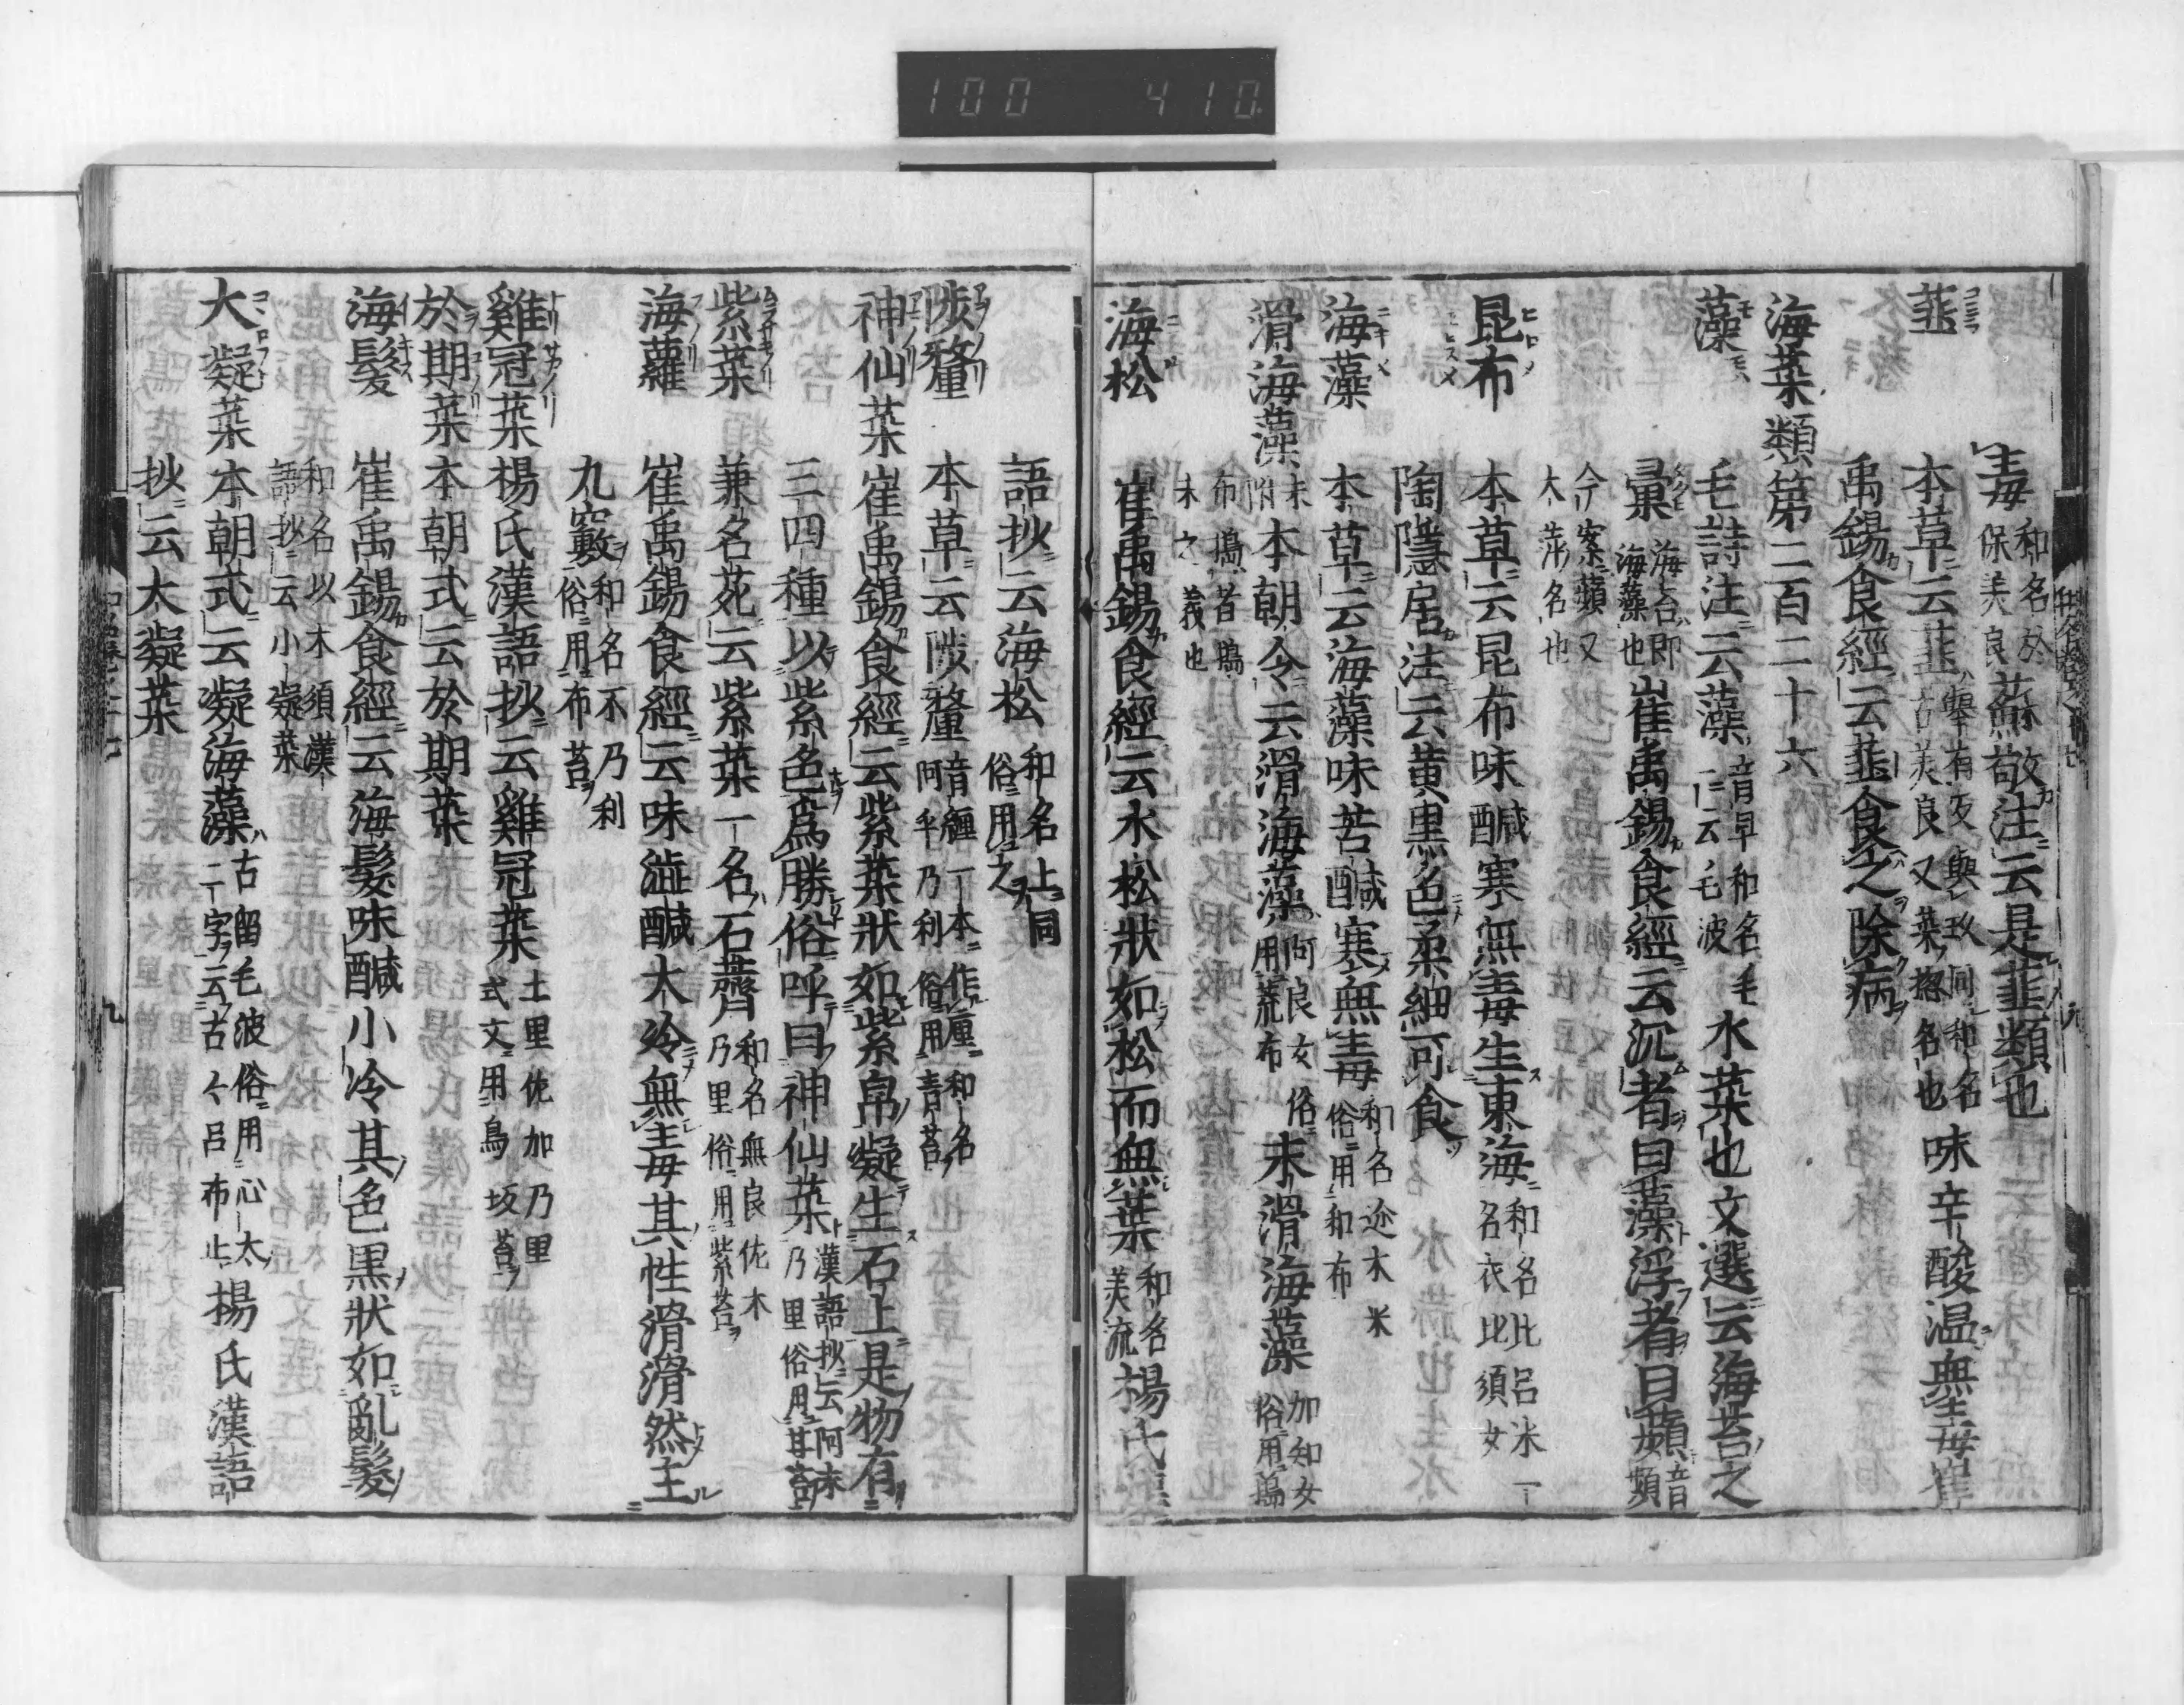 100 410.
毒 和名於保美良 蘇敬注云是韮類也
韮 本草云韮 擧有反與玖同和名古美良又菜捴名也 味辛酸温無毒崔
禹錫食經云韮食之除病
海菜類第二百二十六
藻 毛詩注云藻 音早和名毛一云毛波 水菜也文選云海苔之
彙 海苔即海藻也 崔禹錫食經云沉者曰藻浮者曰蘋 音頻
今案蘋又大萍名也
昆布 本草云昆布味醎寒無毒生東海 和名比呂米一名衣比須女
陶隱居注云黄黒色柔細可食
海藻 本草云海藻味苦醎寒無毒 和名迩木米俗用和布
滑海藻 本朝令云滑海藻 阿良女俗用荒布 末滑海藻 加知女俗用搗
布搗者搗末之義也
海松 崔禹錫食經云水松狀如松而無葉 和名美流 楊氏漢
語抄云海松 和名上同俗用之
陟釐 本草云陟釐 音纏一本作厘和名阿乎乃利俗用青苔
神仙菜 崔禹錫食經云紫菜狀如紫帛凝生石上是物有
三四種以紫色爲勝俗呼曰神仙菜 漢語抄云阿末乃里俗用甘苔
紫菜 兼名苑云紫菜一名石薺 和名無良佐木乃里俗用紫苔
海蘿 崔禹錫食經云味澁醎大冷無毒其性滑滑然主
九竅 和名不乃利俗用布苔
雞冠菜 楊氏漢語抄云雞冠菜 土里佐加乃里式文用鳥坂苔
於期菜 本朝式云於期菜
海髮 崔禹錫食經云海髮味醎小冷其色黒狀如亂髮
和名以木須漢語抄云小凝菜
大凝菜 本朝式云凝海藻 古留毛波俗用心太二字云古々呂布止 楊氏漢語
抄云大凝菜
九